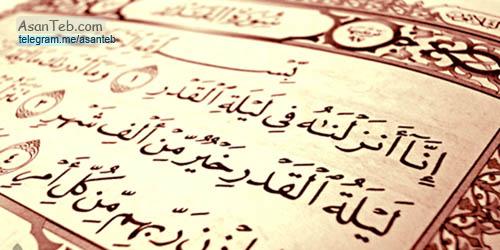 AsanTeb.com
telegram.me/asanteb
سُورَةُ القَدْرِ
بِسْـ
إِنَّآ أَنزَلْنَـٰهُ فِى لَيْلَةِ ٱلْقَدْرِ ١ وَمَآ أَدْرَىٰكَ مَا
لَيْلَةُ ٱلْقَدْرِ خَيْرٌ مِّنْ أَلْفِ شَهْرٍ ٣
رَبِّهِم مِّن كُلِّ أَمْرٍ ٤